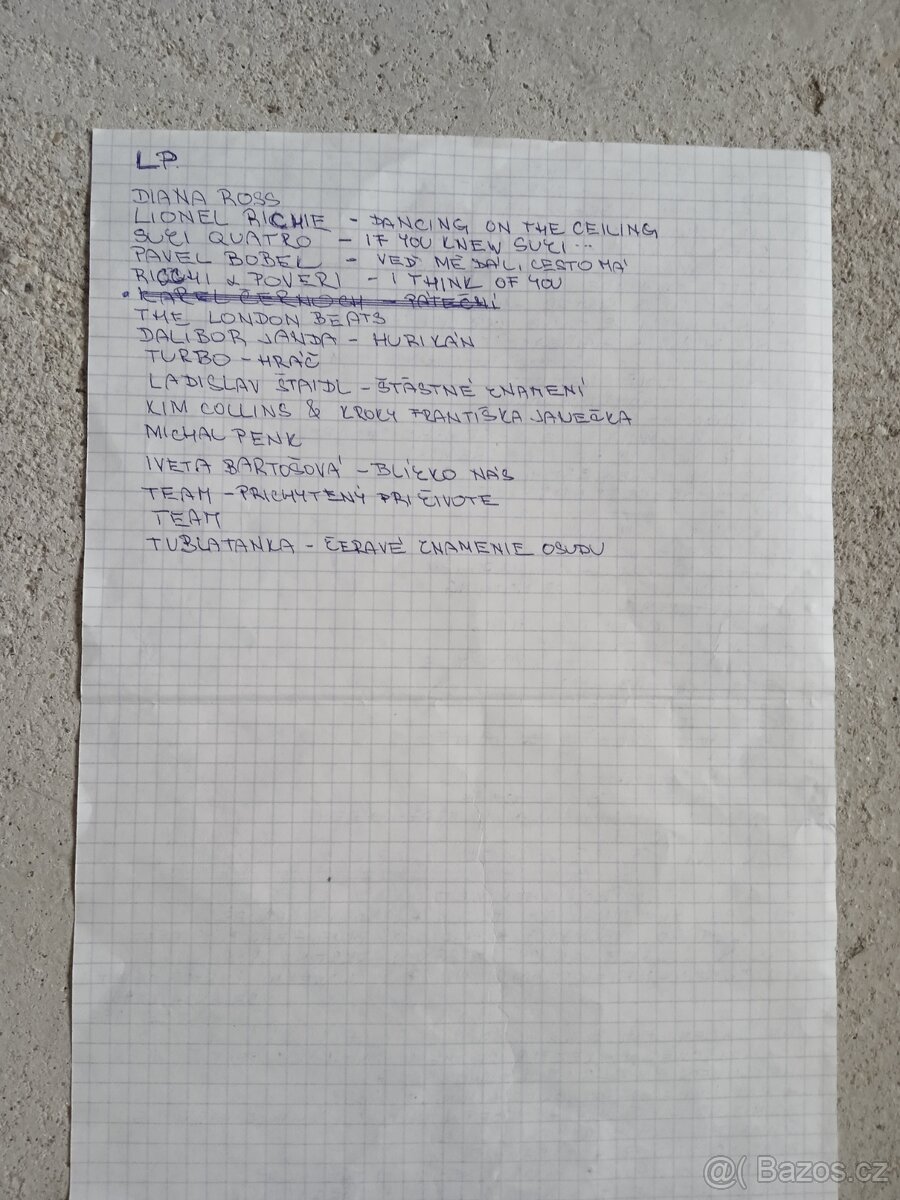 LP.
DIANA ROSS
LIONEL RICHIE - DANCING ON THE CEILING
SUZI QUATRO - IF YOU KNEW SUZI...
PAVEL BOBEL - VEĎ MĚ DÁL, CESTO MÁ
RICCHI & POVERI - I THINK OF YOU
KAREL ČERNOCH - PÁTEČNÍ
THE LONDON BEATS
DALIBOR JANDA - HURIKÁN
TURBO - HRÁČ
LADISLAV ŠTAIDL - ŠŤASTNÉ ZNAMENÍ
KIM COLLINS & KROKY FRANTIŠKA JANEČKA
MICHAL PENK
IVETA BARTOŠOVÁ - BLÍZKO NÁS
TEAM - PRICHYTENÝ PRI ŽIVOTE
TEAM
TUBLATANKA - ŽERAVÉ ZNAMENIE OSUDU
@( Bazos.cz